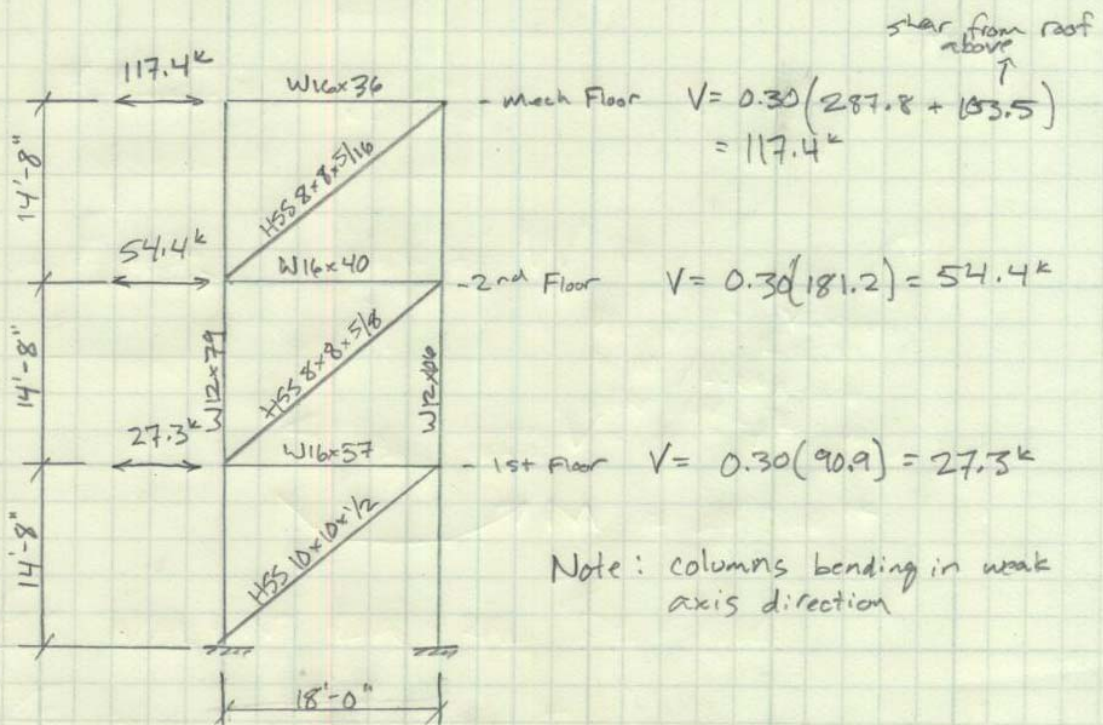 shear from roof
above
117.4k
W16x36
- Mech Floor V= 0.30(287.8 + 103.5)
= 117.4k
14'-8"
HSS 8x8x5/16
54.4k
W16x40
-2nd Floor V= 0.30(181.2) = 54.4k
14'-8"
W12x79
HSS 8x8x5/8
27.3k
W16x57
- 1st Floor V= 0.30(90.9) = 27.3k
14'-8"
HSS 10x10x1/2
Note: columns bending in weak
axis direction
18'-0"